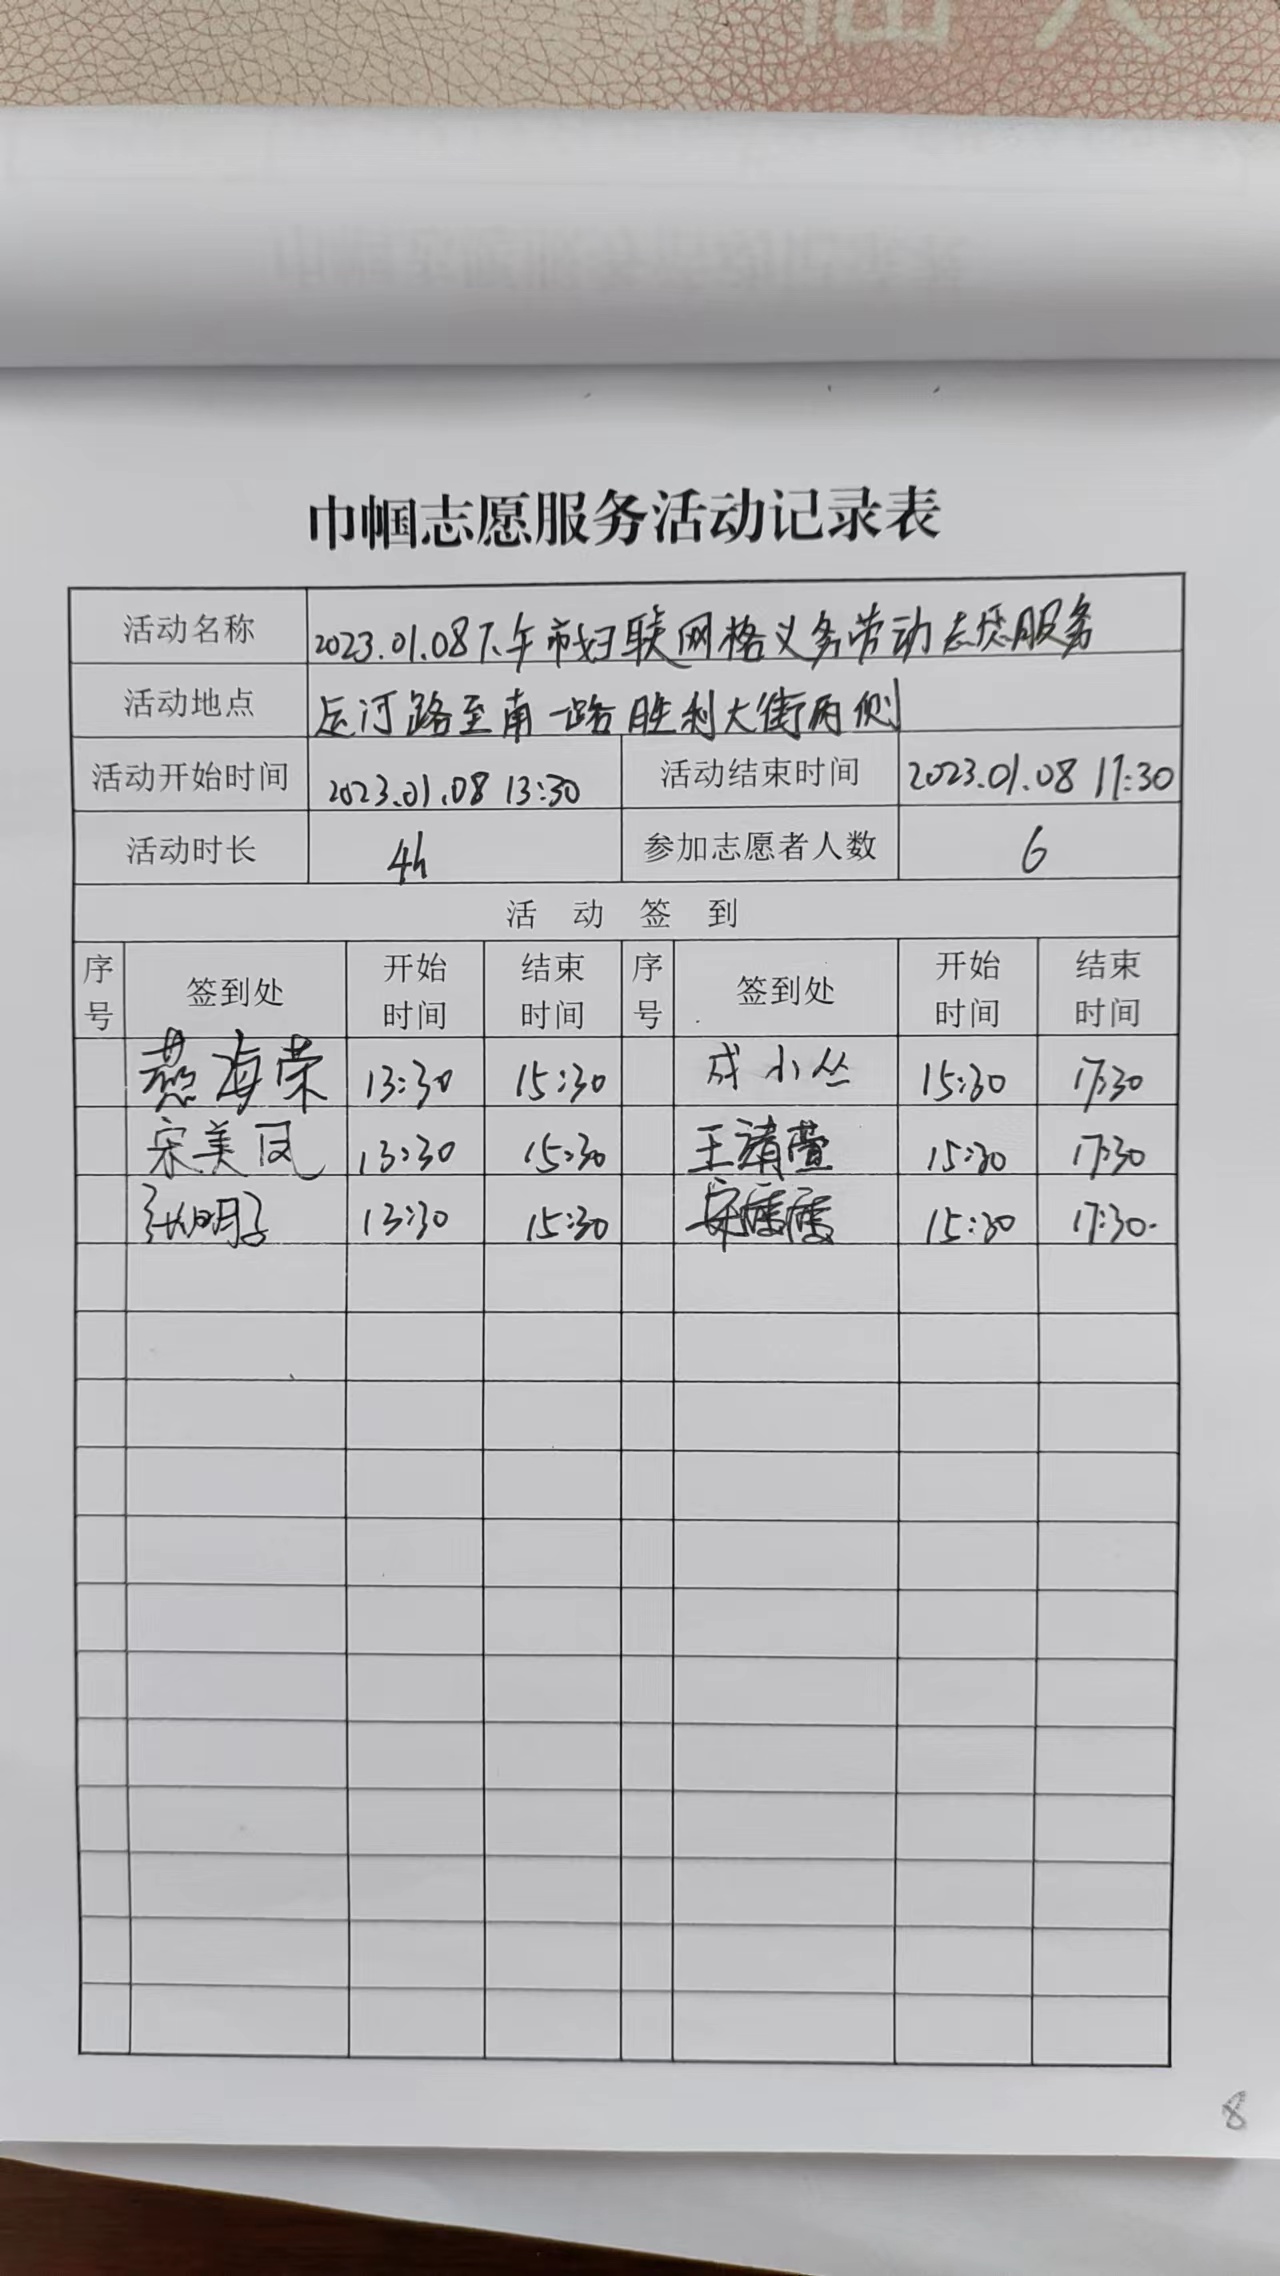 巾帼志愿服务活动记录表
活动名称 2023.01.08下午市妇联网格义务劳动志愿服务
活动地点 运河路至南一路胜利大街两侧
活动开始时间 2023.01.08 13:30 活动结束时间 2023.01.08 17:30
活动时长 4h 参加志愿者人数 6
活动签到
序号 签到处 开始时间 结束时间 序号 签到处 开始时间 结束时间
燕海荣 13:30 15:30 成小丛 15:30 17:30
宋美凤 13:30 15:30 王靖萱 15:30 17:30
张明子 13:30 15:30 安 15:30 17:30.
8